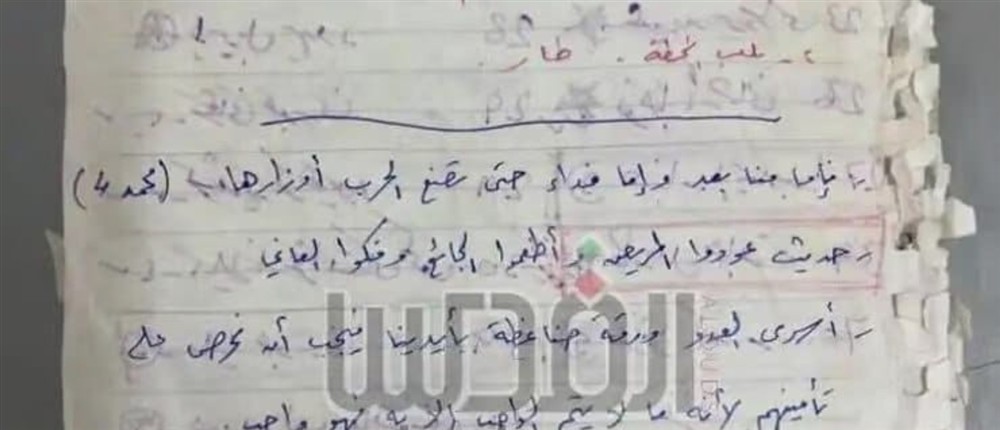 ٢ـ علب لحظة . طار.
ـ فإما منا بعد وإما فداء حتى تضع الحرب أوزارها.. (محمد 4)
ـ حديث عودوا المريض وأطعموا الجائع وفكوا العاني
ـ أسرى العدو ورقة ضاغطة بأيدينا فيجب أن نحرص على
تأمينهم لأنه ما لا يتم الواجب إلا به فهو واجب.
القدس